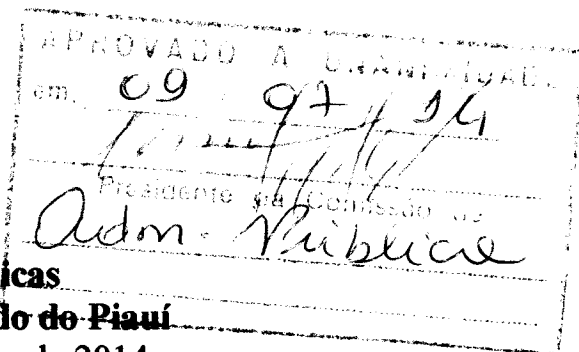 APROVADO A UNANIMIDADE
em, 09 07 14
Presidente da Comissão de
Adm. Pública
icas
do do Piauí
de 2014